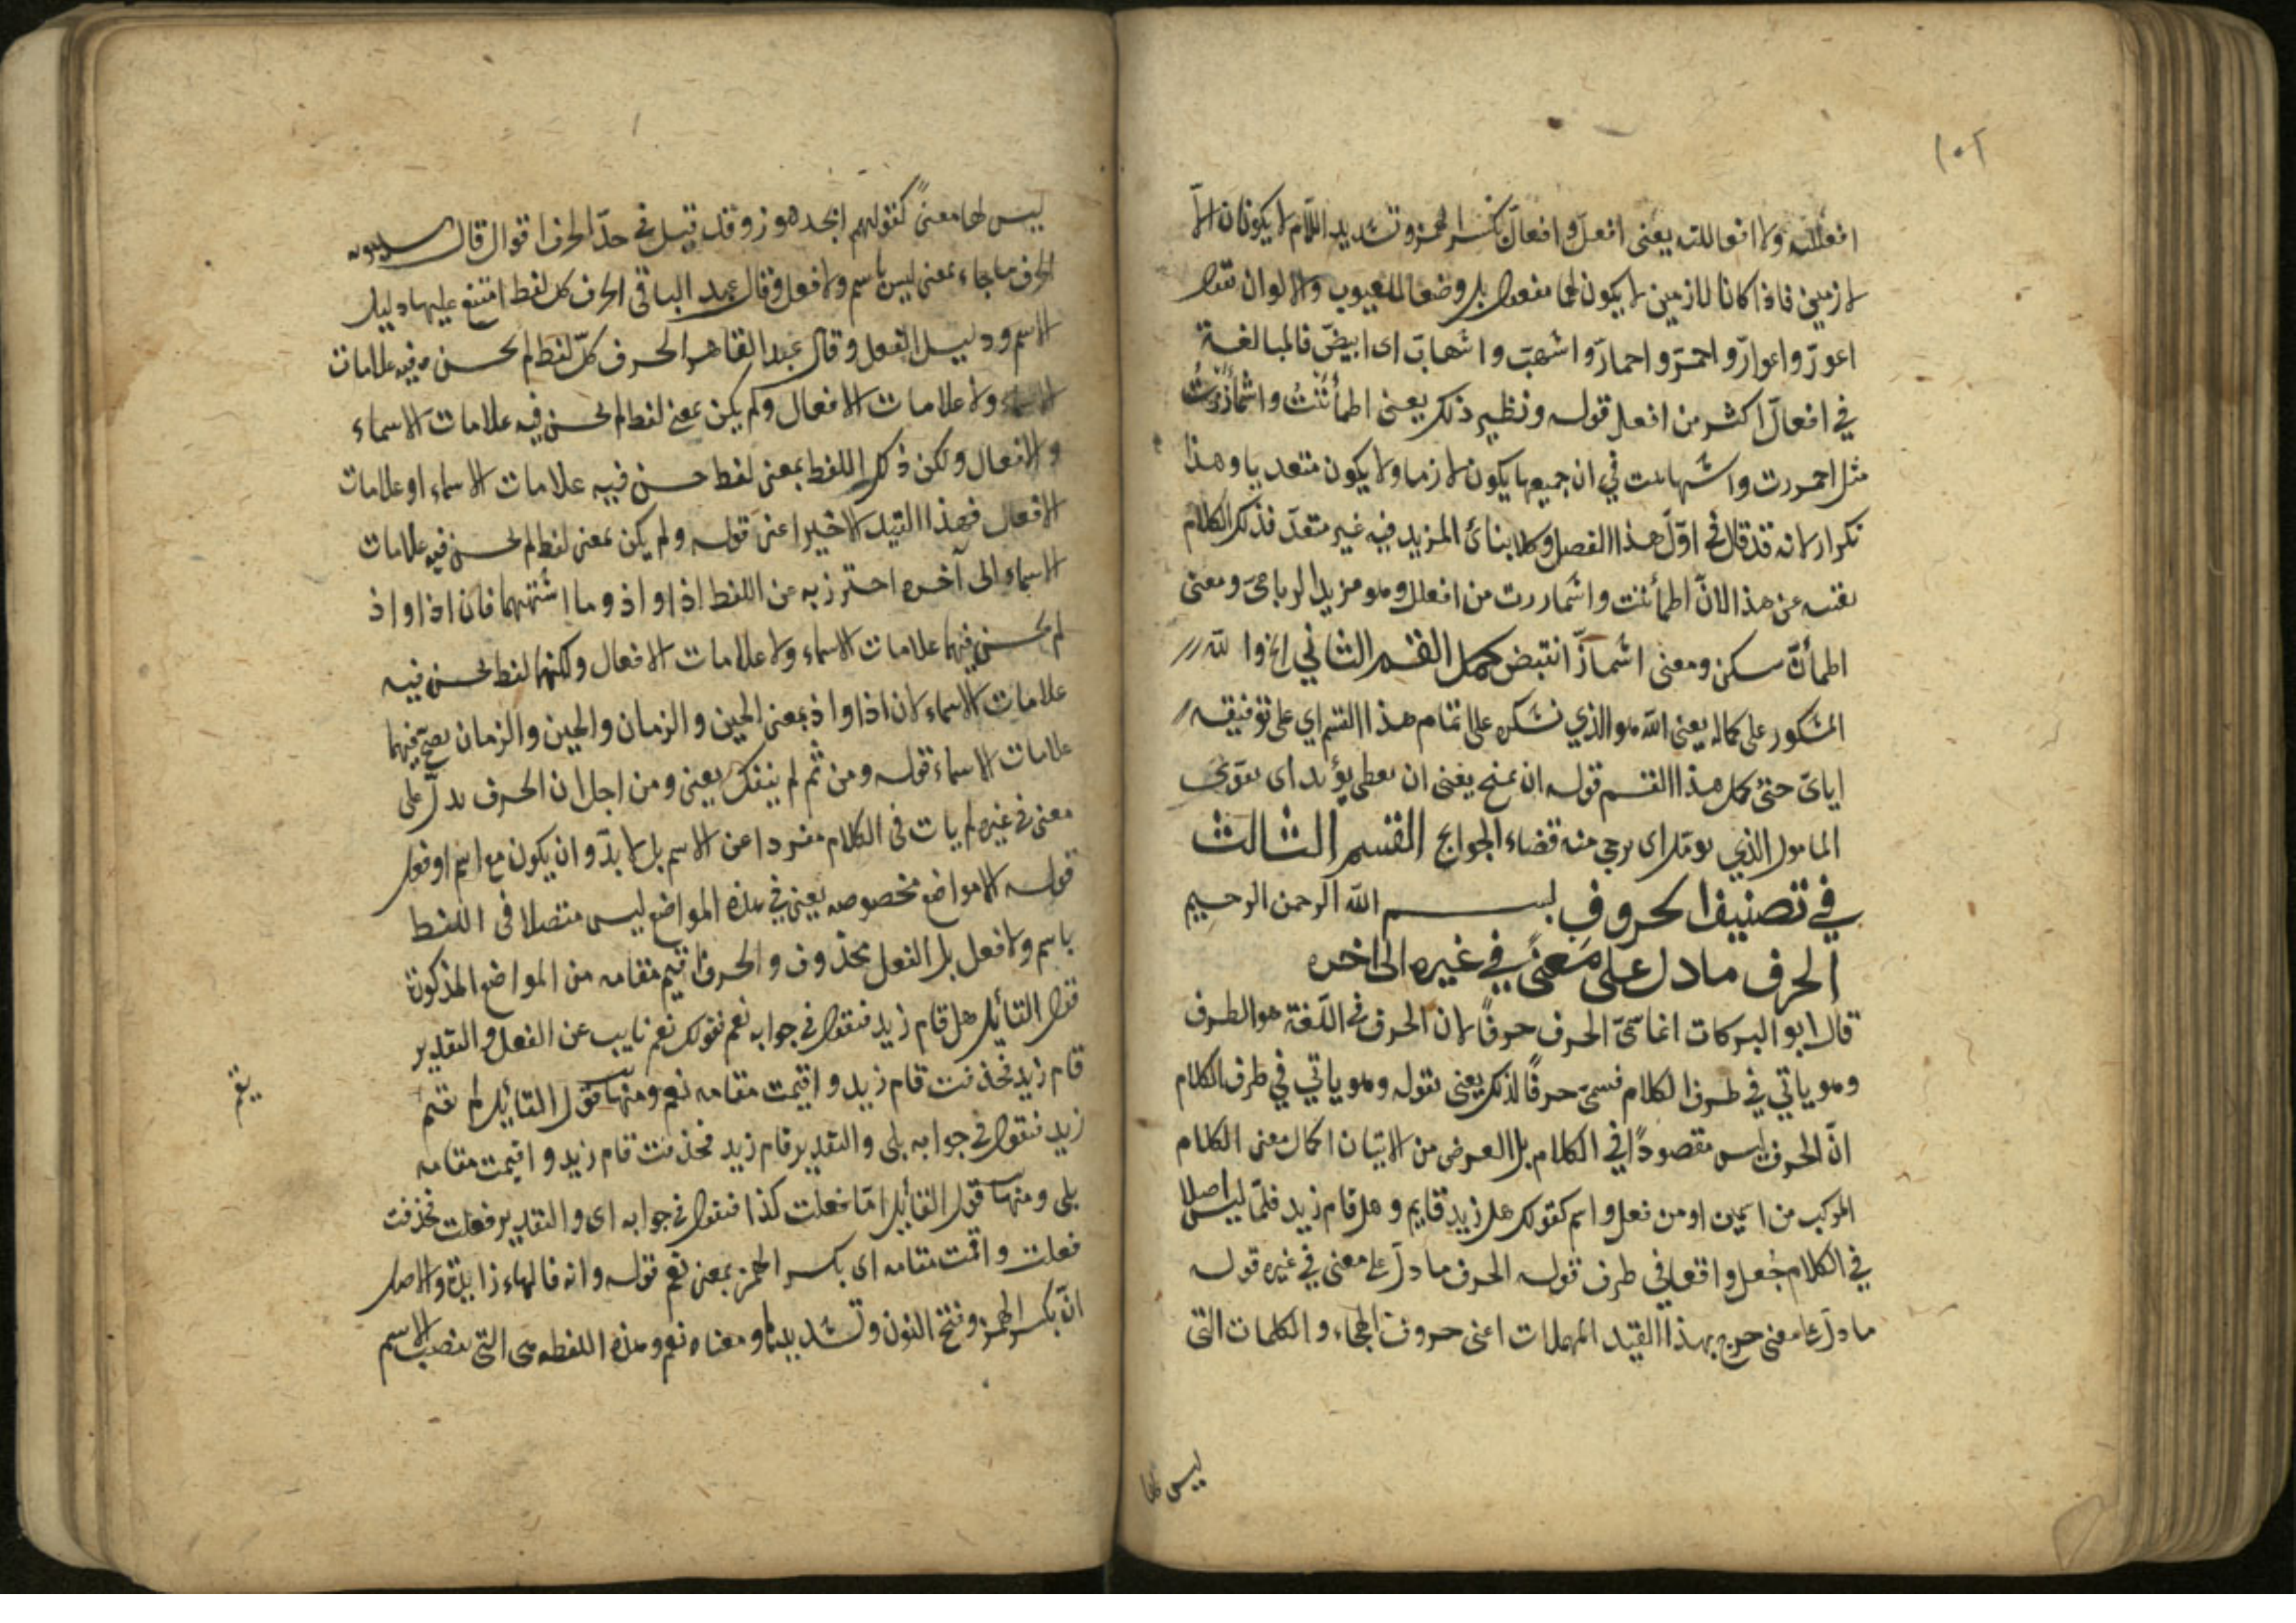 ١٠٢
افعللته ولا افعاللته يعنى افعلّ وافعالّ بكسر الهمز وتشديد اللام لا يكونان الّا
لازمين فاذا كانا لازمين لا يكون لهما مفعول بل وضعا للعيوب والالوان تقول
اعورّ واعوارّ واحمرّ واحمارّ واشهبّ واشهابّ اى ابيضّ فالمبالغة
في افعالّ اكثر من افعل قوله ونظير ذلك يعنى اطمأننتُ واشمأززتُ
مثل احمررت واشهاببت في ان جميعها يكون لازما ولا يكون متعديا وهذا
تكرار لانه قد قال في اوّل هذا الفصل وكلا بنائ المزيد فيه غير متعدّ فذلك الكلام
يغنيه عن هذا لانّ اطمأننت واشماررت من افعلل وهو مزيد الرباعىّ ومعنى
اطمأنّ سكن ومعنى اشمأزّ انتبض كمل القسم الثاني والله
المشكور على كماله يعنى الله هو الذي نشكره على اتمام هذا القسم اي على توفيقه
اياىّ حتى كمل هذا القسم قوله ان يمنح يعنى ان يعطى يؤيد اى يقوى
المامول الذي يومل اى يرجى منه قضاء الحوايج القسم الثالث
في تصنيف الحروف بسم الله الرحمن الرحيم
الحرف ما دل على معنىً في غيره الى اخره
قال ابو البركات انما سمّى الحرف حرفًا لان الحرف في اللغة هو الطرف
وهو ياتي في طرف الكلام فسمىّ حرفًا لذلك يعنى بقوله وهو ياتي في طرف الكلام
انّ الحرف ليس مقصودًا في الكلام بل العرض من الاتيان اكمال معنى الكلام
المركب من اسمين او من فعل واسم كقولك هل زيد قايم وهل قام زيد فلمّا ليس اصلا
في الكلام جُعل واقعا في طرف قوله الحرف ما دلّ على معنى في غيره قوله
ما دلّ على معنى خرج بهذا القيد المهملات اعنى حروف الهجاء والكلمات التى
ليس لها
ليس لها معنىً كقولهم ابجد هوز وقد قيل في حدّ الحرف اقوال قال سيبويه
الحرف ما جاء بمعنى ليس باسم ولا فعل وقال عبد الباقى الحرف كل لفظ امتنع عليها دليل
الاسم ودليل الفعل وقال عبد القاهر الحرف كلّ لفظ لم يحسن فيه علامات
الاسماء ولا علامات الافعال ولم يكن بمعنى لفظ لم يحسن فيه علامات الاسماء
والافعال ولكن ذلك اللفظ بمعنى لفظ حسن فيه علامات الاسماء او علامات
الافعال فهذا القيد الاخير اعنى قوله ولم يكن بمعنى لفظ لم يحسن فيه علامات
الاسماء الى آخره احترز به عن اللفظ اذا واذ وما اشبههما فان اذا واذ
لم يحسن فيهما علامات الاسماء ولا علامات الافعال ولكنهما لفظ يحسن فيه
علامات الاسماء لان اذا واذ بمعنى الحين والزمان والحين والزمان يصحّ فيهما
علامات الاسماء قوله ومن ثمّ لم ينفك يعنى ومن اجل ان الحرف يدلّ على
معنى في غيره لم يات فى الكلام منفردا عن الاسم بل لا بدّ وان يكون مع اسم او فعل
قوله الا مواضع مخصوصه يعنى في هذه المواضع ليس متصلا فى اللفظ
باسم ولا فعل بل الفعل محذوف والحرف اقيم مقامه من المواضع المذكورة
قول القائل هل قام زيد فتقول في جوابه نعم فقولك نعم نايب عن الفعل والتقدير
قام زيد فحذفت قام زيد واقيمت مقامه نعم ومنها قول القائل لم يقم
يقم
زيد فتقول في جوابه بلى والتقدير قام زيد فحذفت قام زيد واقيمت مقامه
بلى ومنها قول القائل امّا فعلت كذا فتقول في جوابه اى والتقدير فعلت فحذفت
فعلت واقمت مقامه اى بكسر الهمز بمعنى نعم قوله وانه فالهاء زايدة والاصل
انّ بكسر الهمز وفتح النون وتشديدها ومعناه نعم وهذه اللفظه هى التى تنصب الاسم